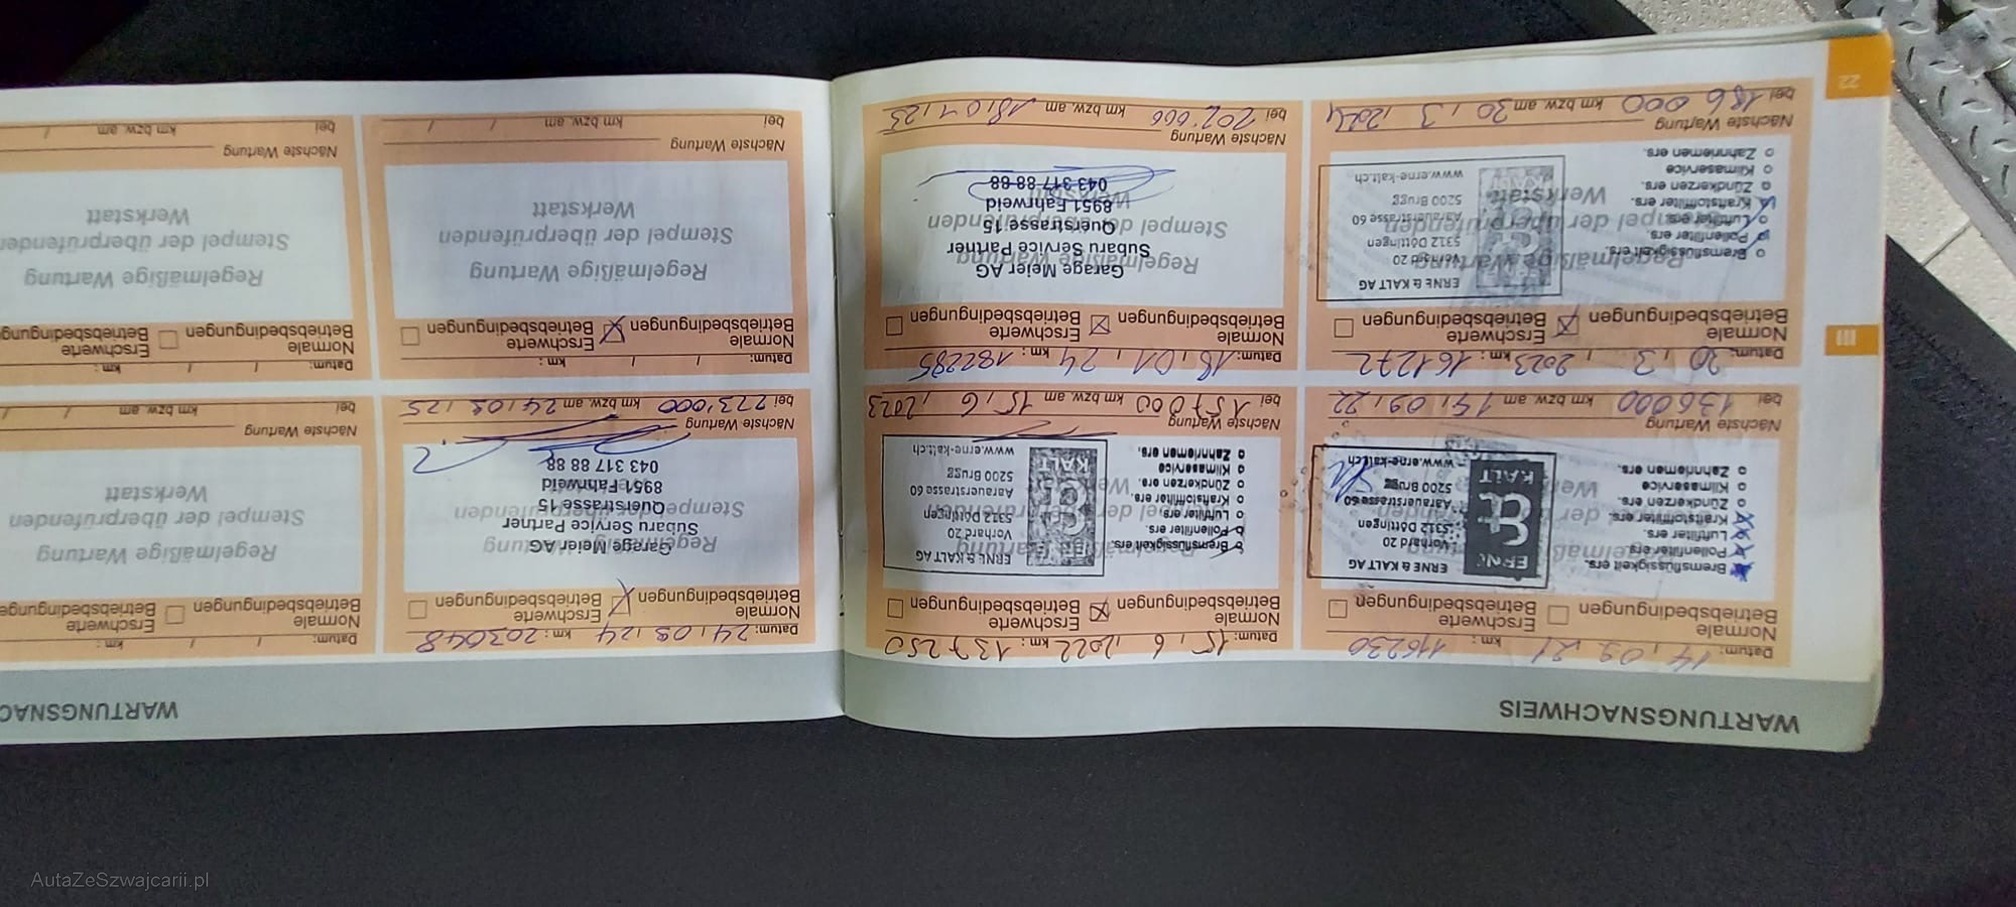 WARTUNGSNACHWEIS
Datum: 14, 09, 21 km: 116230
Normale Betriebsbedingungen
Erschwerte Betriebsbedingungen
Bremsflüssigkeit ers.
Pollenfilter ers.
Luftfilter ers.
Kraftstofffilter ers.
Zündkerzen ers.
Klimaservice
Zahnriemen ers.
ERNE & KALT AG
Vorhard 20
5312 Döttingen
Aarauerstrasse 60
5200 Brugg
www.erne-kalt.ch
KALT
Nächste Wartung
bei 136000 km bzw. am 14, 09, 22
Datum: 15, 6, 2022 km: 137250
Normale Betriebsbedingungen
Erschwerte Betriebsbedingungen
Bremsflüssigkeit ers.
Pollenfilter ers.
Luftfilter ers.
Kraftstofffilter ers.
Zündkerzen ers.
Klimaservice
Zahnriemen ers.
ERNE & KALT AG
Vorhard 20
5312 Döttingen
Aarauerstrasse 60
5200 Brugg
www.erne-kalt.ch
KALT
Nächste Wartung
bei 157000 km bzw. am 15, 6, 2023
Datum: 30, 3, 2023 km: 161272
Normale Betriebsbedingungen
Erschwerte Betriebsbedingungen
Bremsflüssigkeit ers.
Pollenfilter ers.
Luftfilter ers.
Kraftstofffilter ers.
Zündkerzen ers.
Klimaservice
Zahnriemen ers.
ERNE & KALT AG
Vorhard 20
5312 Döttingen
Aarauerstrasse 60
5200 Brugg
www.erne-kalt.ch
Nächste Wartung
bei 186000 km bzw. am 30, 3, 2024
Datum: 18, 01, 24 km: 182285
Normale Betriebsbedingungen
Erschwerte Betriebsbedingungen
Regelmäßige Wartung
Stempel der überprüfenden
Garage Meier AG
Subaru Service Partner
Querstrasse 15
8951 Fahrweid
043 317 88 88
Nächste Wartung
bei 202'000 km bzw. am 18, 01, 25
III
22
WARTUNGSNAC
Datum: 24, 09, 24 km: 203048
Normale Betriebsbedingungen
Erschwerte Betriebsbedingungen
Regelmäßige Wartung
Stempel der überprüfenden
Garage Meier AG
Subaru Service Partner
Querstrasse 15
8951 Fahrweid
043 317 88 88
Nächste Wartung
bei 223'000 km bzw. am 24, 09, 25
Datum: / / km:
Normale Betriebsbedingungen
Erschwerte Betriebsbedingungen
Regelmäßige Wartung
Stempel der überprüfenden
Werkstatt
Nächste Wartung
bei km bzw. am / /
Datum: / / km:
Normale Betriebsbedingungen
Erschwerte Betriebsbedingungen
Regelmäßige Wartung
Stempel der überprüfenden
Werkstatt
Nächste Wartung
bei km bzw. am / /
Datum: / / km:
Normale Betriebsbedingungen
Erschwerte Betriebsbedingungen
Regelmäßige Wartung
Stempel der überprüfenden
Werkstatt
Nächste Wartung
bei km bzw. am /
AutaZeSzwajcarii.pl